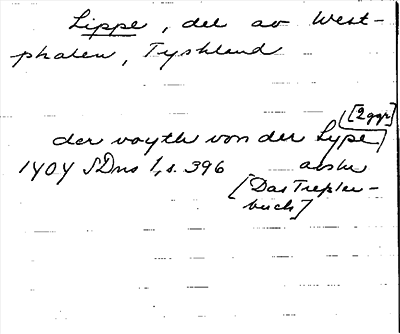 Lippe, del av West-
phalen, Tyskland
[2ggr]
der voyth von der Lype
1404 SDns 1, s. 396 avskr
[Das Tresler-
buch]